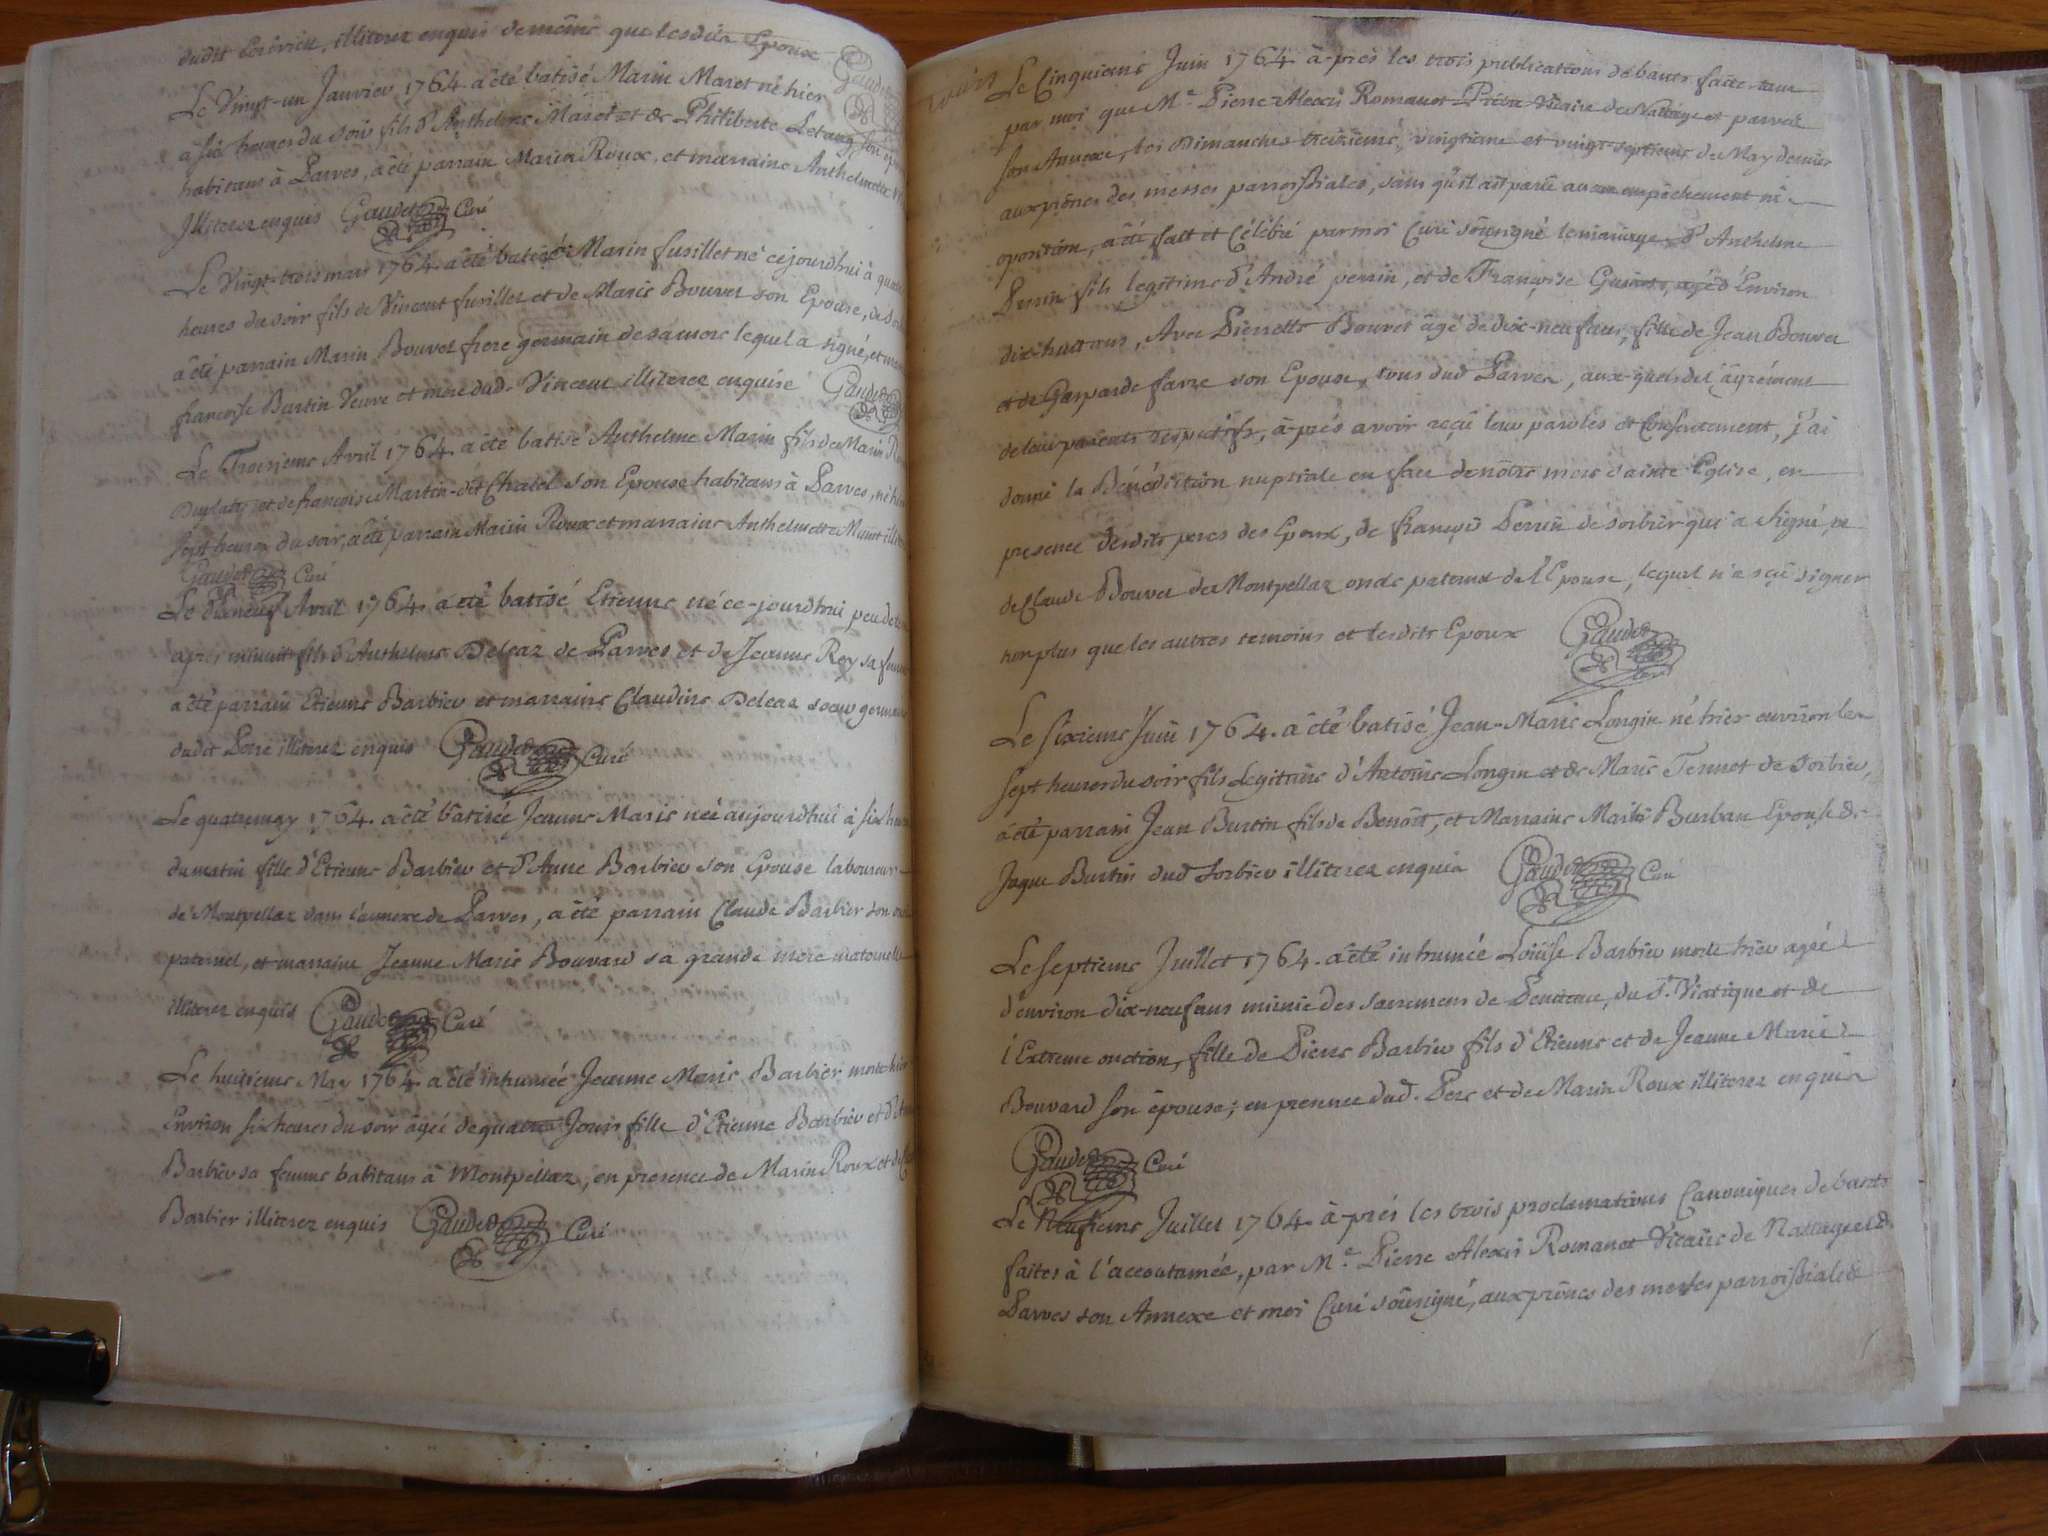 dudit illiterez enquis de même que lesdits Epoux
Gaudet
Le Vingt-un Janvier 1764. a été batisé Marin Maret né hier
a six heures du soir fils d'Anthelme Maret et de Philiberte son
habitans à Parves, a été parrain Marin Roux, et marraine Anthelmette
Illiterez enquis Gaudet Curé
Le Vingt-trois mars 1764. a été batisé Marin fusillet né cejourdhui à
heures du soir fils de Vincent fusillet et de Marie Bouvet son Epouse,
a été parrain Marin Bouvet frere germain de sa mere lequel a signé, et
francoise Burtin Veuve et mere dud. Vincent illiterez enquise Gaudet
Le Troisieme Avril 1764. a été batisé Anthelme Marin fils de Marin
et de françoise Martin-dit Chatel son Epouse habitans à Parves, né hier
sept heures du soir, a été parrain Marin Roux et marraine Anthelmette
Gaudet Curé
Le Dixneuf Avril 1764. a été batisé Etienne né ce-jourdhui peu de
apres minuit fils d'Anthelme Deleaz de Parves et de Jeanne Rey sa femme
a été parrain Etienne Barbier et marraine Claudine Deleaz soeur germaine
dudit Pere illiterez enquis Gaudet Curé
Le quatre may 1764. a été bâtisée Jeanne Marie née aujourdhui à six heures
du matin fille d'Etienne Barbier et d'Anne Barbier son Epouse laboureur
de Montpellaz dans l'annexe de Parves, a été parrain Claude Barbier son
paternel, et marraine Jeanne Marie Bouvard sa grande mere maternelle
illiterez enquis Gaudet Curé
Le huitieme May 1764 a été inhumée Jeanne Marie Barbier morte hier
Environ six heures du soir âgée de quatre Jours fille d'Etienne Barbier et d'Anne
Barbier sa femme habitans à Montpellaz, en presence de Marin Roux et de
Barbier illiterez enquis Gaudet Curé
Le Cinquieme Juin 1764 à-prés les trois publications de bancs faite tant
par moi que Mᵉ. Pierre Alexis Romanet Prêtre Vicaire de Nattage et parves
son Annexe, les Dimanches treizieme, vingtieme et vingt-septieme de May dernier
aux prônes des messes parroissiales, sans qu'il ait parue aucun empêchement ni
oposition, a été fait et Célébré par moi Curé soussigné le mariage d'Anthelme
Perrin fils legitime d'André perrin, et de Françoise agée d'Environ
dix-huit ans, Avec Pierrette Bouvet âgé de dix-neuf ans, fille de Jean Bouvet
et de Gasparde farze son Epouse, tous dud Parves, aux-quels del'agrément
de leur parents respectifs, à-prés avoir reçû leur paroles et Consentement, j'ai
donné la Bénédiction nuptiale en face de nôtre mere sainte Eglise, en
presence desdits peres des Epoux, de françois Perrin de sorbier qui a signé,
de Claude Bouvet de Montpellaz oncle paternel de l'Epouse, lequel n'a sçu signer
non plus que les autres temoins et lesdits Epoux Gaudet
Le sixieme Juin 1764. a été batisé Jean-Marie Longin né hier environ les
sept heures du soir fils Legitime d'Antoine Longin et de Marie Tennet de Sorbier,
a été parrain Jean Burtin fils de Benoît, et Marraine Marie Burban Epouse de
Jaque Burtin dud Sorbier illiterez enquis Gaudet Curé
Le septieme Juillet 1764. a été inhumée Loüise Barbier morte hier agée
d'environ dix-neuf ans munie des sacremens de Penitence, du St. Viatique et de
l'Extreme onction, fille de Pierre Barbier fils d'Etienne et de Jeanne Marie
Bouvard son épouse; en presence dud. Pere et de Marin Roux illiterez enquis
Gaudet Curé
Le Neufieme Juillet 1764. à-prés les trois proclamations Canoniques de bancs
faites à l'accoutumée, par Mᵉ. Pierre Alexis Romanet Vicaire de Nattage et de
Parves son Annexe et moi Curé soussigné, aux prônes des messes parroissiales